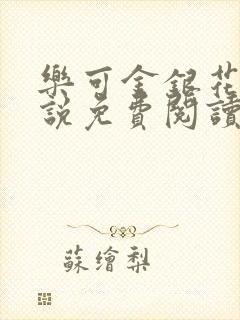 樂可金銀花
說免費閱讀
蘇繪梨